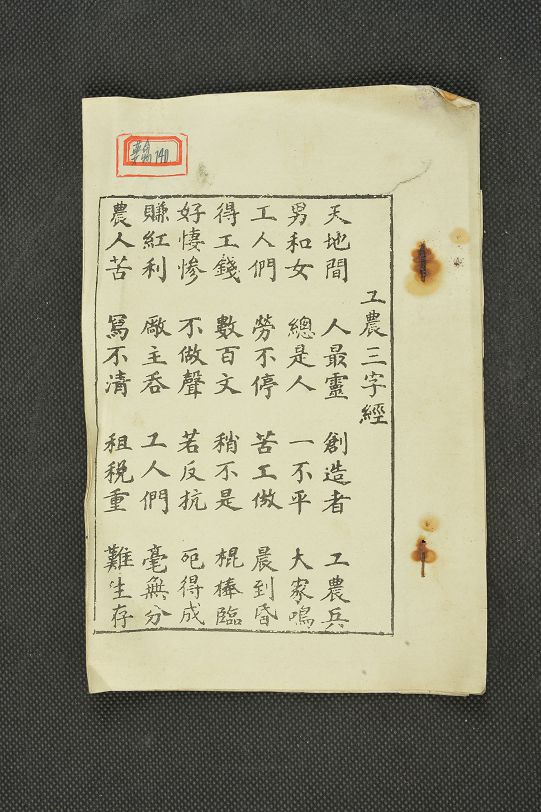 工農三字經
天地間 人最靈 創造者 工農兵
男和女 總是人 一不平 大家鳴
工人們 勞不停 苦工做 晨到昏
得工錢 數百文 稍不是 棍棒臨
好悽慘 不做聲 若反抗 死得成
賺紅利 廠主吞 工人們 毫無分
農人苦 寫不清 租稅重 難生存
141